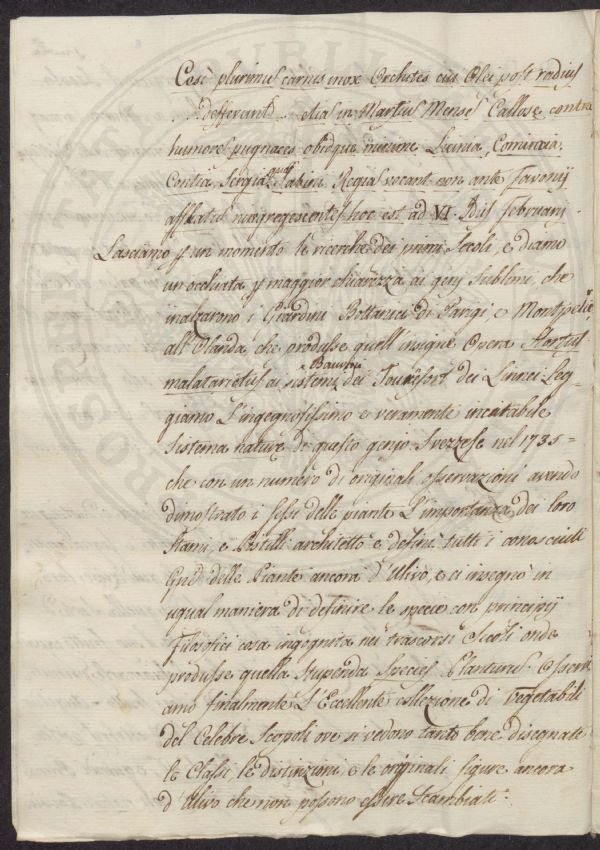 Così plurimus carnis inox Orchites cui Olei post radius
defferent .. etias in Martius Menses Callose contra
humores pugnaces obidque nurime Lucinia, Comirixia,
Contia Sergia, quas Sabini Regias vocant non ante favonij
afflatus nigregescentes hoc est ad VI. Dis februarij
Lasciamo p un momento le ricerche dei primi secoli, e diamo
un occhiata p maggior chiarezza ai genj sublimi, che
inalzarono i Giardini Bottanici di Parigi e Montpelier
all'Olanda, che produsse quell'insigne Opera Hortus
malataricus ai sistemi dei Bauvini Tournefort dei Linnei. Leg-
giamo L'ingegnosissimo e veramente incitabile
sistema nature di questo genjo Svezzese nel 1735 =
che con un numero di originali osservazioni avendo
dimostrato i sessi delle piante L'importanza dei loro
stami, e Pistilli architettò e definì tutti i conosciuti
Gnd. delle Piante ancora d'Ulivo, e ci insegnò in
ugual maniera di definire le specie con principij
filosofici cosa incognita nei trascorsi secoli onde
produsse quella stupenda Species Plantarus. Osservi
amo finalmente L'Eccellente collezione di Vegetabili
del Celebre Scopoli ove si vedono tanto bene disegnate
le Classi, le distinzioni e le originali figure ancora
d'Ulivo che non possono essere scambiati.